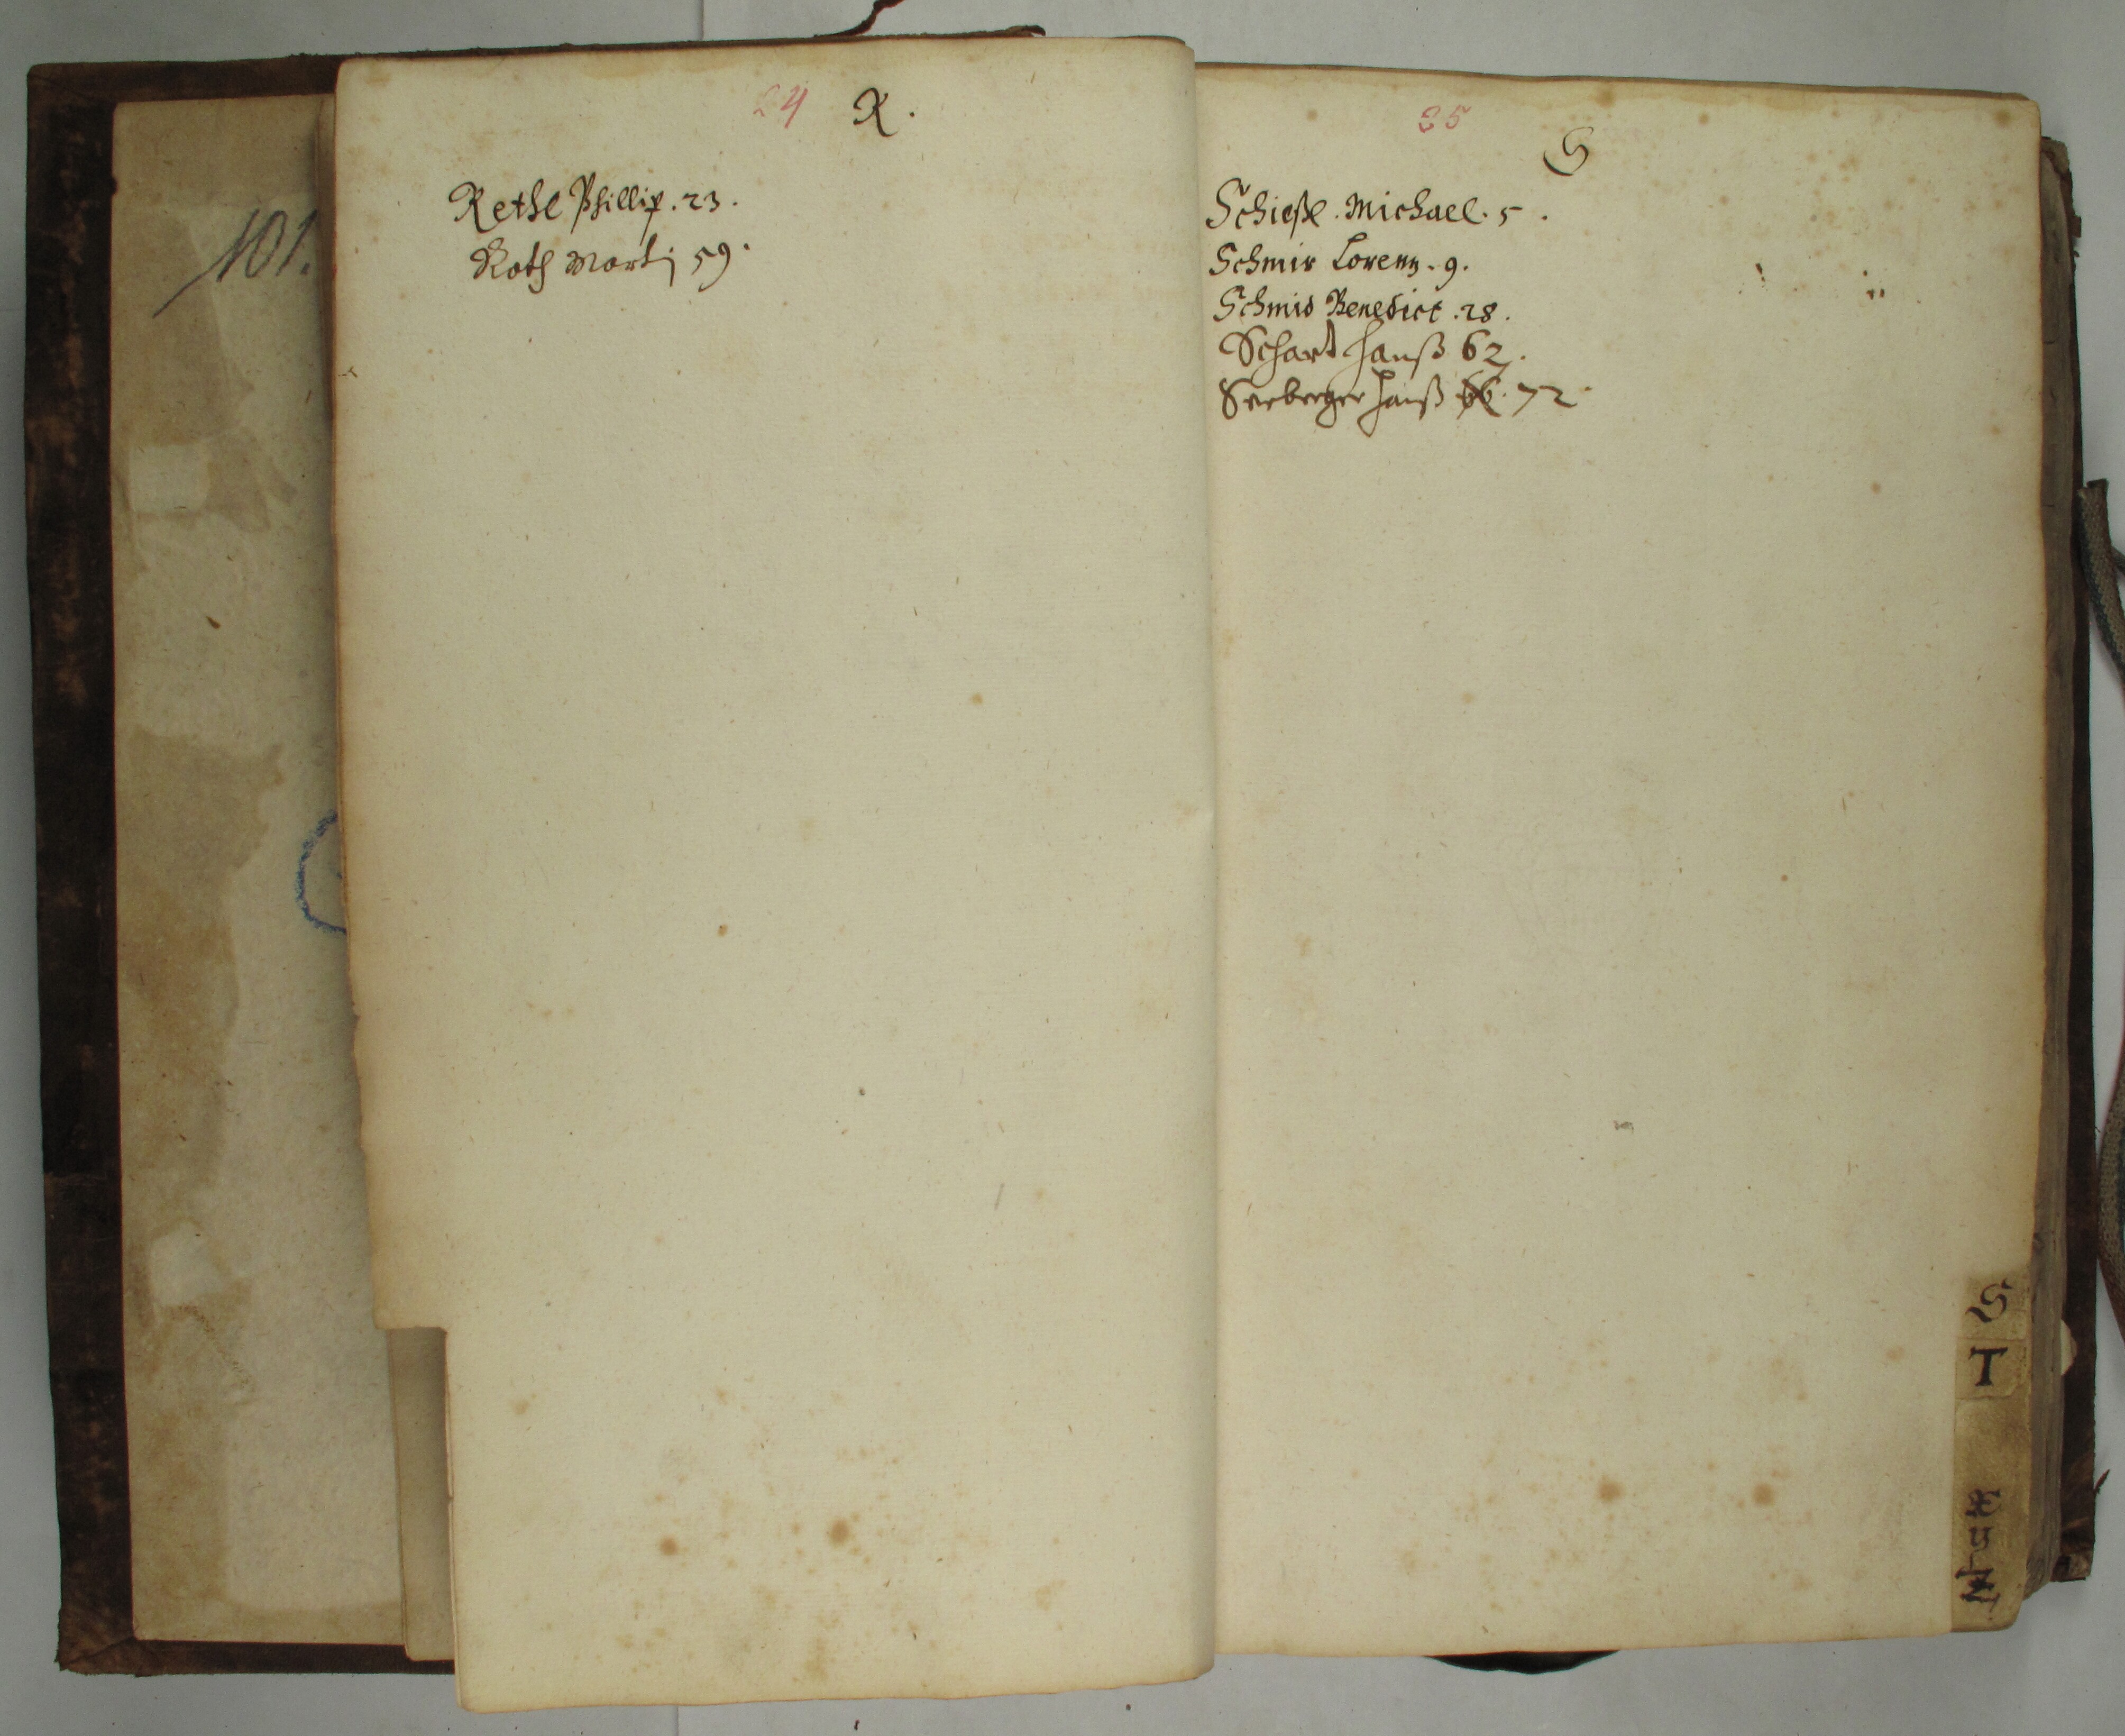 101.
24 R.
Rethl Phillip. 23.
Roth Marti 59.
35
S
Schießl. Michael. 5.
Schmir Lorenz. 9.
Schmid Benedict. 28.
Schart Hanß 62.
Seeberger Hanß 66. 72
S
T
X
Y
Z